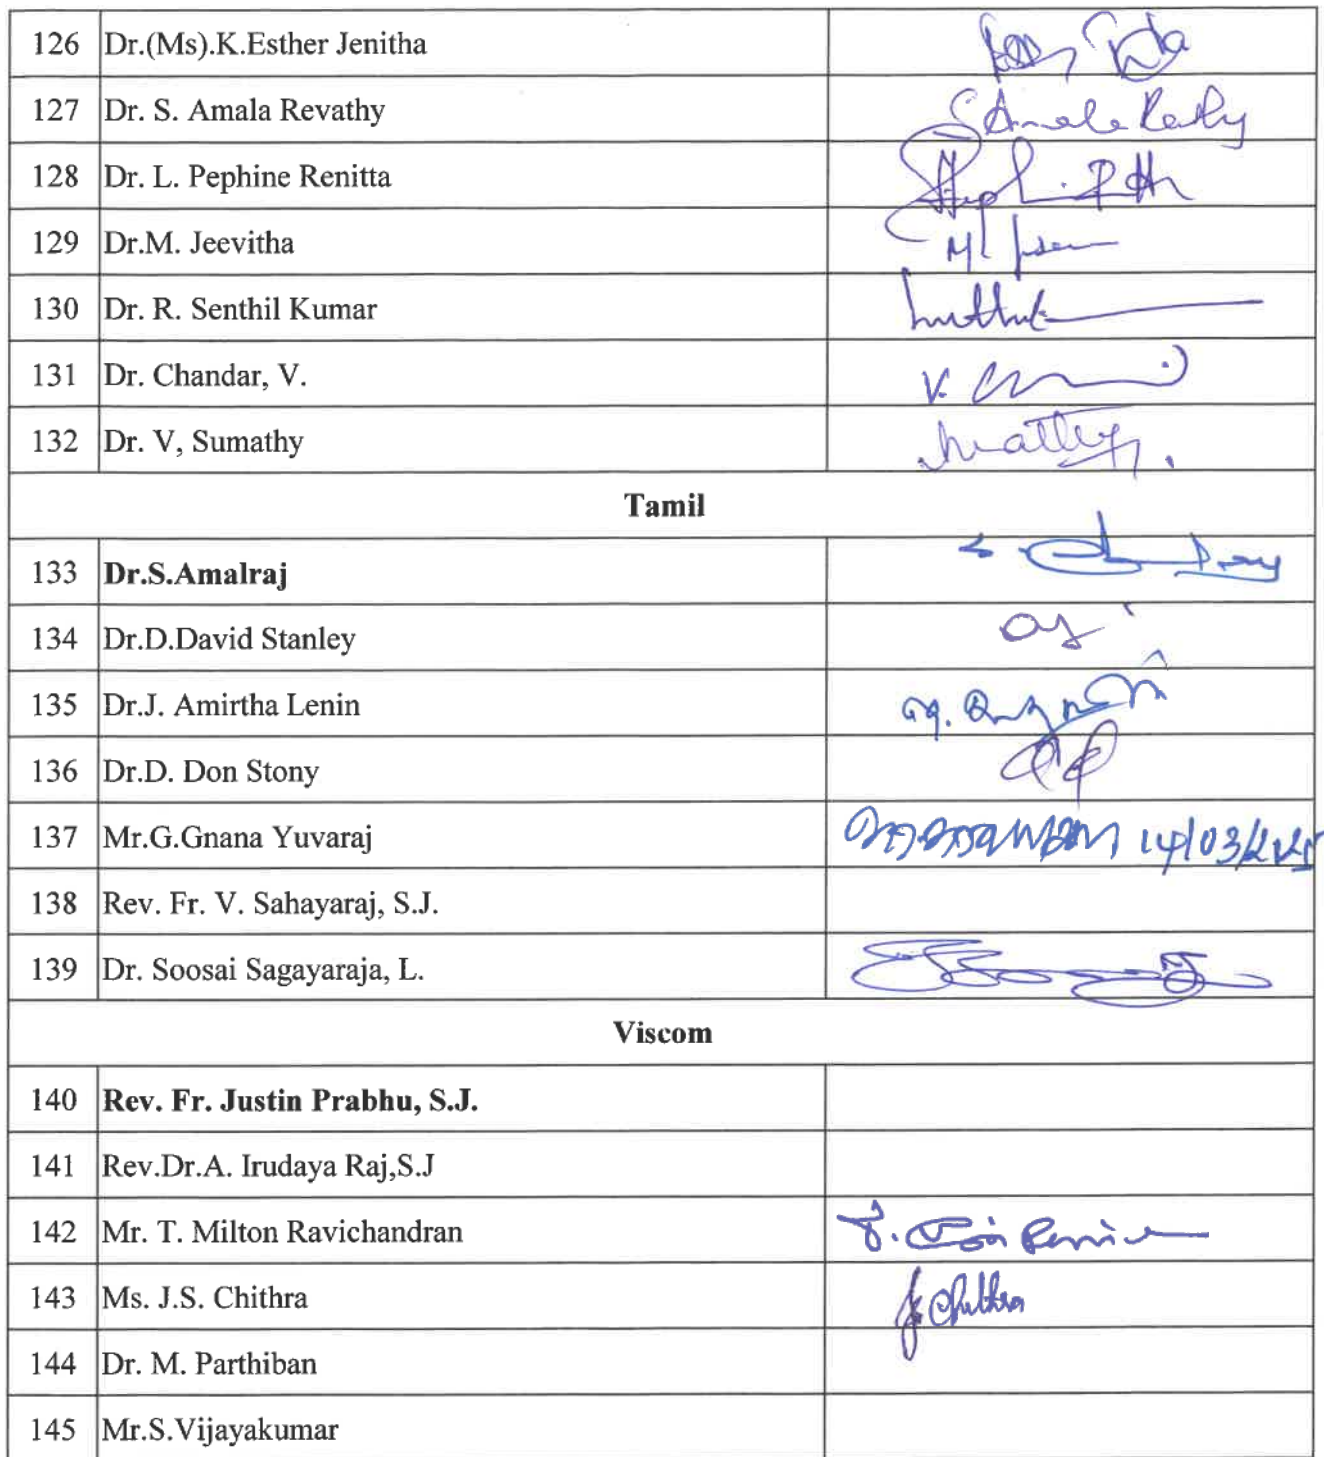 126 Dr.(Ms).K.Esther Jenitha
127 Dr. S. Amala Revathy S Amala
128 Dr. L. Pephine Renitta
129 Dr.M. Jeevitha M
130 Dr. R. Senthil Kumar
131 Dr. Chandar, V. V.
132 Dr. V, Sumathy
Tamil
133 Dr.S.Amalraj
134 Dr.D.David Stanley
135 Dr.J. Amirtha Lenin
136 Dr.D. Don Stony
137 Mr.G.Gnana Yuvaraj 14/03/2025
138 Rev. Fr. V. Sahayaraj, S.J.
139 Dr. Soosai Sagayaraja, L.
Viscom
140 Rev. Fr. Justin Prabhu, S.J.
141 Rev.Dr.A. Irudaya Raj,S.J
142 Mr. T. Milton Ravichandran
143 Ms. J.S. Chithra Chithra
144 Dr. M. Parthiban
145 Mr.S.Vijayakumar